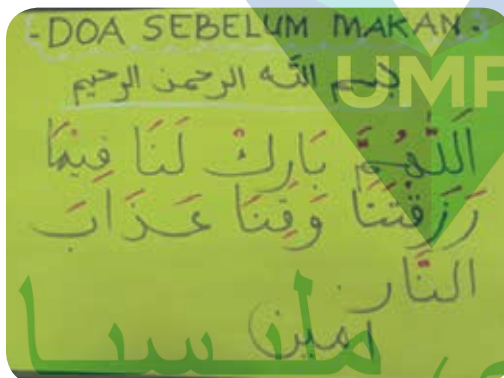 -DOA SEBELUM MAKAN-
بسم الله الرحمن الرحيم
اَللّٰهُمَّ بَارِكْ لَنَا فِيْمَا
رَزَقْتَنَا وَقِنَا عَذَابَ
النَّارِ
امين
UMP
مليسيا